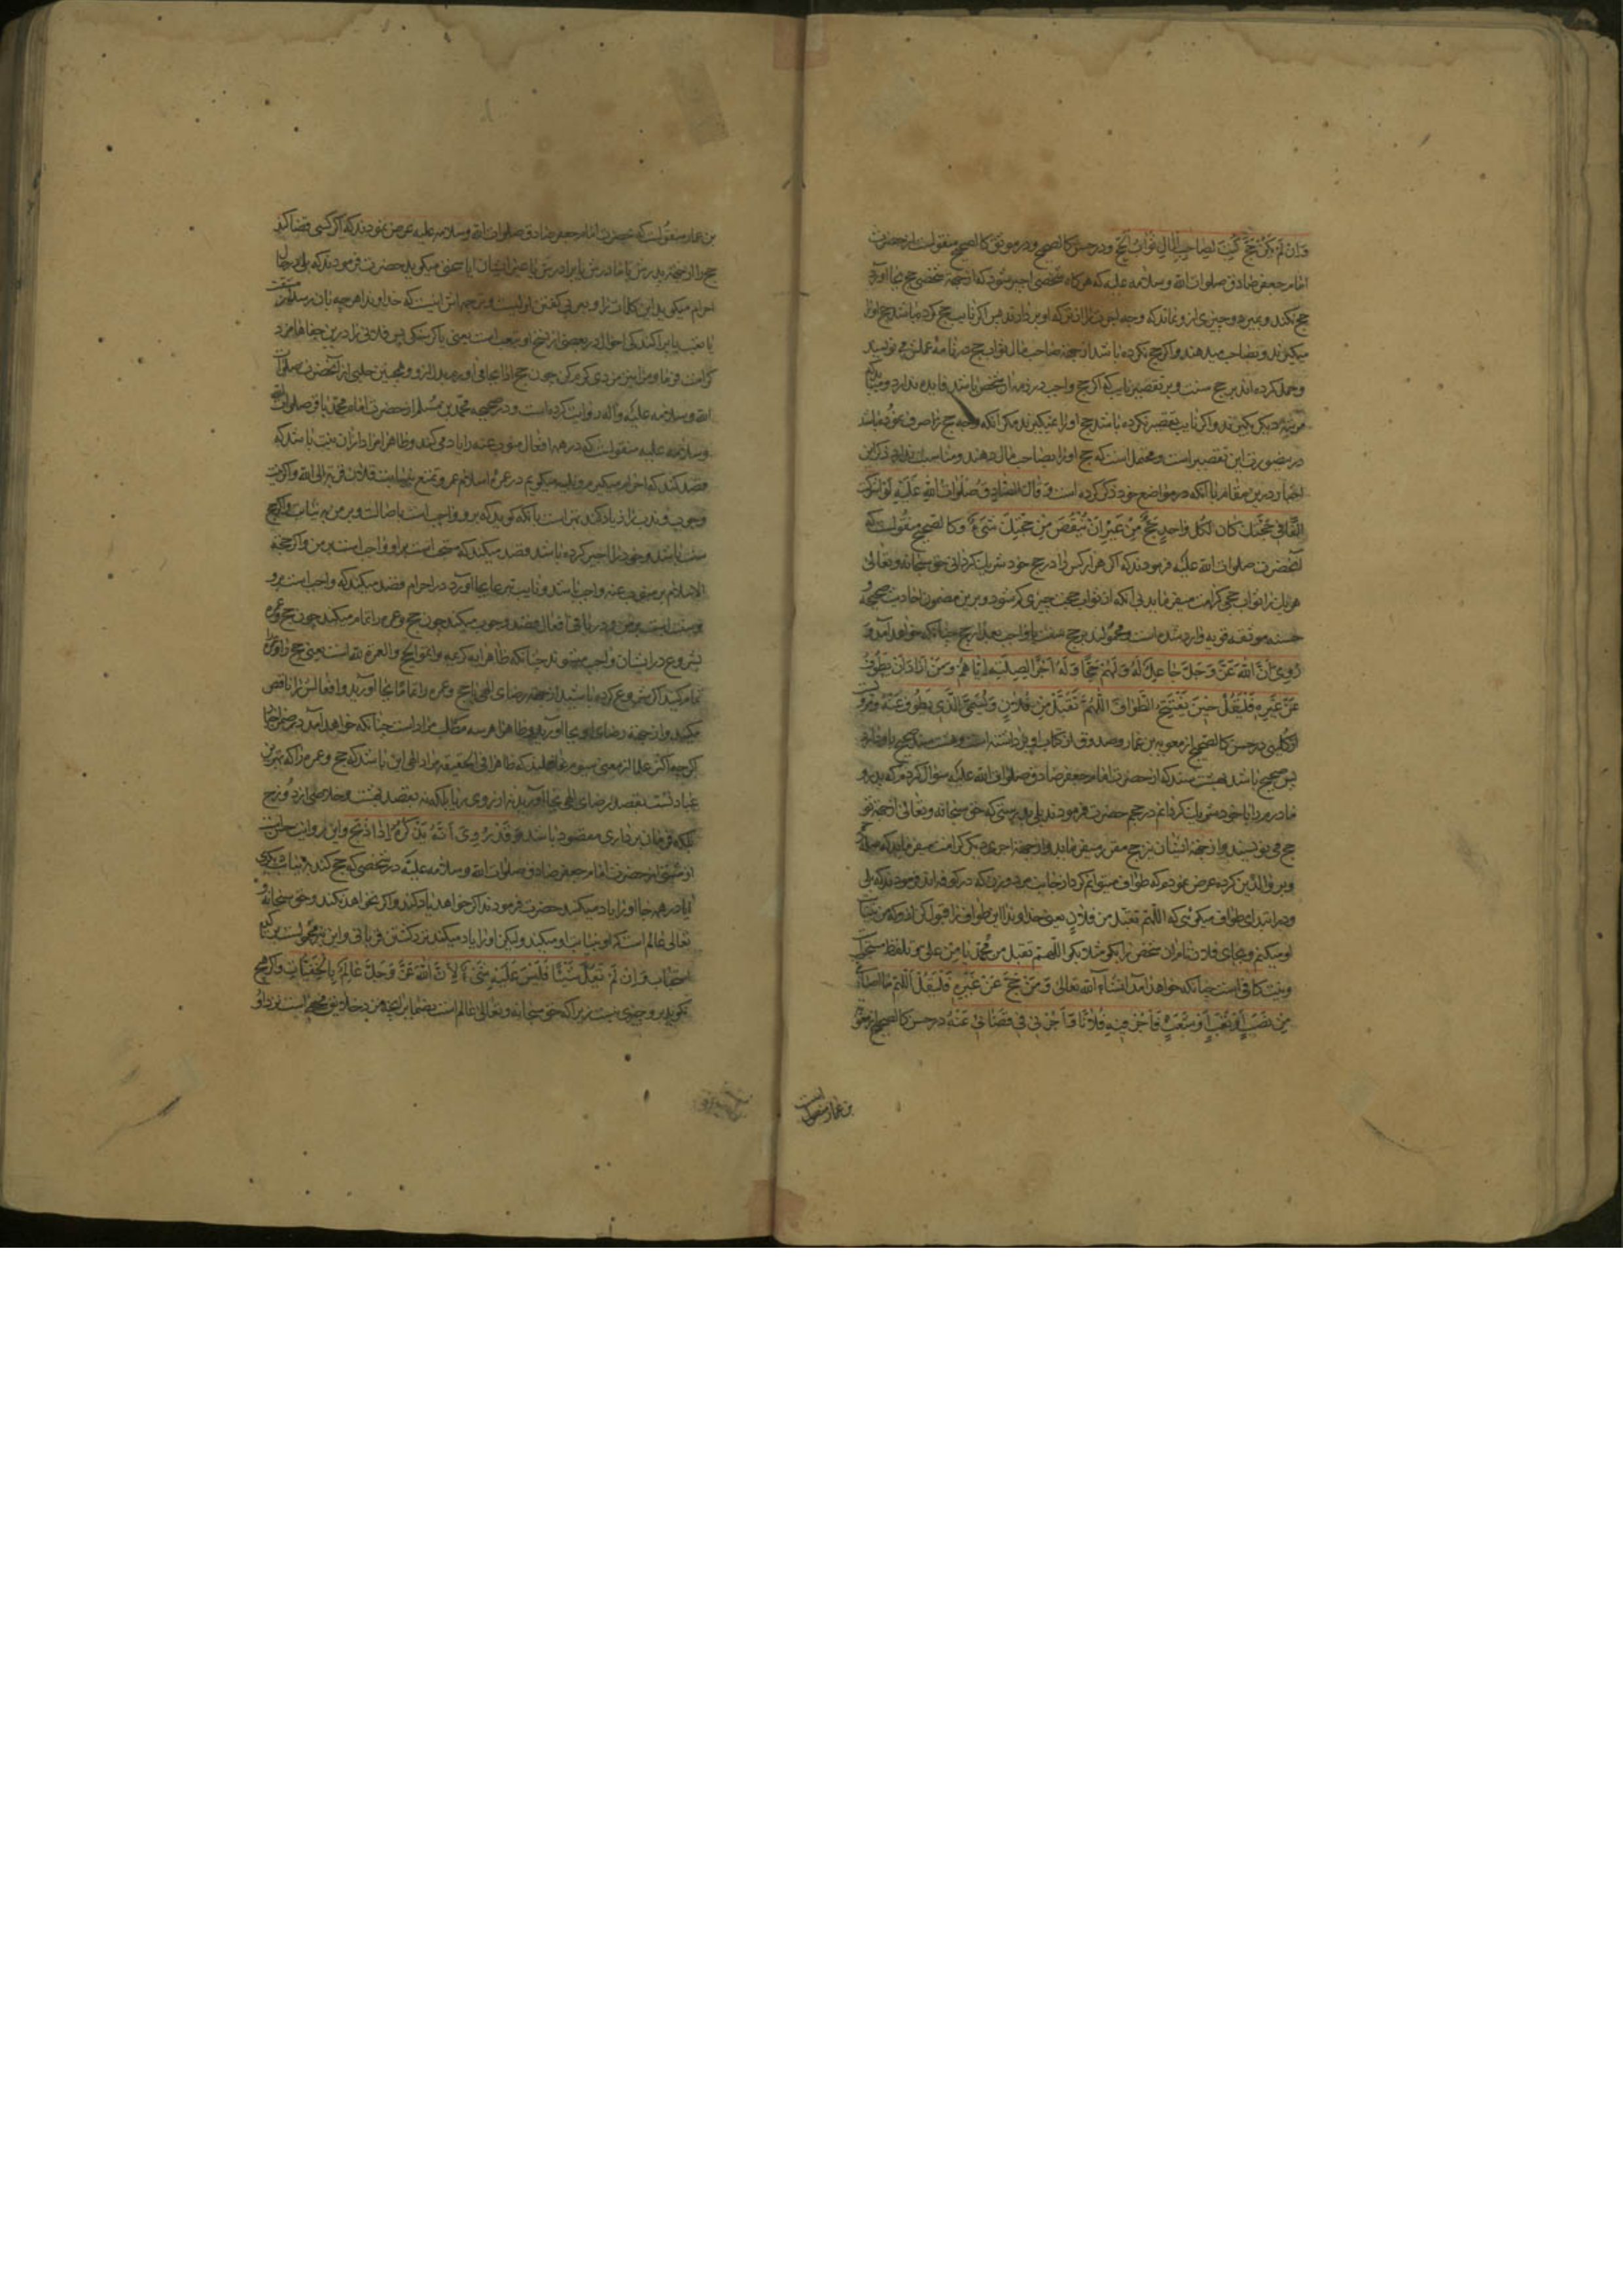 وَاِنْ لَمْ يَكُنْ حَجَّ كُتِبَ لِصاحِبِ المالِ ثَوابُ الحَجِّ ودر حسن كالصحیح ودر موثق كالصحیح منقولست از حضرت
امام جعفر صادق صلوات الله وسلامه علیه که هرگاه شخصی اجیر شود که از جهة شخصی حج بجا آورد
حج نکند وبمیرد وچیزی ازو نماند که وجه اجرت را از ترکه او بردارند پس اگر نایب حج کرده باشد حج او را
میگیرند وبصاحب میدهند واگر حج نکرده باشد از جهة صاحب مال ثواب حج در نامه عملش می نویسند
وحمل کرده اند بر حج سنت وبر تقصیر نایب که اگر حج واجب در ذمه آن شخص باشد فایده ندارد
دیگر بگیرند واگر نایب تقصیر نکرده باشد حج او را نمیگیرند مگر آنکه وجه حج را صرف نموده باشد
در صورت این تقصیر است ومحتمل است که حج او را بصاحب مال دهند ومناسب نبود ذکر این
اخبار درین مقام با آنکه در مواضع خود ذکر کرده است وَ قالَ الصّادِقُ صَلَواتُ اللهِ عَلَيْهِ لَوْ اَشْرَكْتَ
اَلْفاً في حَجَّتِكَ كانَ لِكُلِّ واحِدٍ حَجٌّ مِنْ غَيْرِ اَنْ يَنْقُصَ مِنْ حَجَّتِكَ شَيْءٌ وكالصحیح منقولست که
آنحضرت صلوات الله علیه فرمودند که اگر هزار کس را در حج خود شریک گردانی حق سبحانه وتعالی
هریک را ثواب حجی کرامت میفرماید بی آنکه از ثواب حجت چیزی کم شود وبرین مضمون احادیث صحیحه و
حسنه موثقه قویه وارد شده است ومحمولند بر حج سنت یا واجب بعد از حج چنانکه خواهد آمد وَ
رُوِيَ اَنَّ اللهَ عَزَّ وَجَلَّ جاعِلٌ لَهُ وَلَهُمْ حَجّاً وَلَهُ اَجْراً لِصِلَتِهِ اِيّاهُمْ وَمَنْ اَرادَ اَنْ يَطُوفَ
عَنْ غَيْرِهِ فَلْيَقُلْ حينَ يَفْتَتِحُ الطَّوافَ اَللّهُمَّ تَقَبَّلْ مِنْ فُلانٍ وَيُسَمِّي الَّذي يَطُوفُ عَنْهُ
کلینی در حسن کالصحیح از معویه بن عمار وصدوق از کتاب او برداشته است
پس صحیح باشد بهشت سند که از حضرت امام جعفر صادق صلوات الله علیه سؤال کردم که پدر و
مادرم را با خود شریک گردانم در حجم حضرت فرمودند بلی بدرستی که حق سبحانه وتعالی از جهة تو
حج می نویسد واز جهة ایشان نیز حج مقرر میفرماید واز جهة اجری دیگر کرامت میفرماید که صله
وبر والدین کرده عرض نمودم که طواف میتوانم کرد از جانب مرد وزن که در کوفه اند فرمودند که بلی
ودر ابتدای طواف میگوئی که اللّهمّ تقبّل من فلان یعنی خداوندا این طواف را قبول کن از و که من
او میکنم وبجای فلان نام آن شخص را بگو مثلا بگو اللّهمّ تقبل من محمّد یا من علی وتلفظ مستحب
ونیت کافی است چنانکه خواهد آمد انشآء الله تعالی وَ مَنْ حَجَّ عَنْ غَيْرِهِ فَلْيَقُلْ اَللّهُمَّ ما اَصابَني
مِنْ نَصَبٍ اَوْ تَعَبٍ اَوْ شَعَثٍ فَاْجُرْ فيهِ فُلاناً وَأْجُرْني في قَضائي عَنْهُ در حسن کالصحیح از معویه
بن عمار منقولست
بن عمار منقولست که بحضرت امام جعفر صادق صلوات الله وسلامه علیه عرض نمودند که اگر کسی قضا کند
حج را از جهة پدرش یا مادرش یا برادرش یا غیر ایشان آیا سخنی میگوید حضرت فرمودند که بلی در حال
احرام میگوید این کلمات را وبعربی گفتن اولیست وترجمه اش اینست که خداوندا هرچه بمن رسد از مشقت
یا تعب یا پراکندگی احوال در بعضی نسخ او شعب است یعنی یا گرسنگی پس فلانی را درین جفاها مزد
کرامت فرما ومرا نیز مزدی کرم کن چون حج ادا بجا می آورم بدل از و وهمچنین حلبی از آنحضرت صلوات
الله وسلامه علیه وآله روایت کرده است ودر صحیحه محمّد بن مسلم از حضرت امام محمّد باقر صلوات الله
وسلامه علیه منقولست که در همه افعال منوب عنه را یاد می کند وظاهرا مراد از آن نیت باشد که
قصد کند که احرام میگیرم وتلبیه میگویم در عمره اسلام عمره تمتع بنیابت فلان قربة الی الله واگر نیت
وجوب وندب را زیاد کند بهتر است با آنکه گوید که برو واجب است باصالت وبر من به نیابت واگر حج
سنت باشد وخود را اجیر کرده باشد قصد میکند که سنتی است بر او وواجب است بر من واگر حجة
الاسلام بر منوب عنه واجب باشد ونایب تبرعا بجا آورد در احرام قصد میکند که واجب است برو
وسنت است بر من ودر باقی افعال قصد وجوب میکند چون حج وعمره را تمام میکند چون حج وعمره
بشروع در ایشان واجب میشوند چنانکه ظاهر آیه کریمه واتمّوا الحجّ والعمرة لله است یعنی حج را وعمره
تمام کنید اگر شروع کرده باشید از جهة رضای الهی یا حج وعمره را تماما بجا آورید وافعالش را ناقص
مکنید واز جهة رضای او بجا آورید وظاهرا هر سه مطلب مراد است چنانکه خواهد آمد در ضمن اخبار
اگر چه اکثر علما از معنی سیوم غافلند که ظاهرا فی الحقیقه مراد الهی این باشد که حج وعمره را که بهترین
عباداتست بقصد رضای الهی بجا آورید نه از روی ریا بلکه نه بقصد بهشت وخلاصی از دوزخ
بلکه فرمان برداری مقصود باشد وَ قَدْ رُوِيَ اَنَّهُ يَذْكُرُهُ اِذا ذَبَحَ واین روایت حلبی است
از مثنی از حضرت امام جعفر صادق صلوات الله وسلامه علیه در شخصی که حج کند به نیابت دیگری
آیا در همه جا او را یاد میکند حضرت فرمودند اگر خواهد یاد کند واگر نخواهد نکند وحق سبحانه و
تعالی عالم است که او نیابت او میکند ولیکن او را یاد میکند نزد کشتن قربانی واین نیز محمولست بر تأکید
استحباب وَ اِنْ لَمْ يَقُلْ شَيْئاً فَلَيْسَ عَلَيْهِ شَيْءٌ لِاَنَّ اللهَ عَزَّ وَجَلَّ عالِمٌ بِالْخَفِيّاتِ واگر هیچ
نگوید برو چیزی نیست زیرا که حق سبحانه وتعالی عالم است